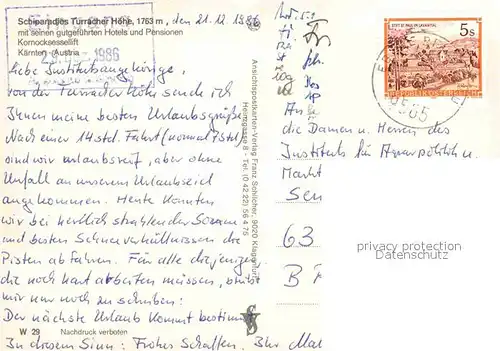 Schiparadies Turracher Höhe, 1763 m, den 21.12.1986
mit seinen gutgeführten Hotels und Pensionen
Kornocksessellift
Kärnten - Austria
1986
Liebe Institutsangehörige,
von der Turracher Höhe sende ich
Ihnen meine besten Urlaubsgrüße
Nach einer 14 std. Fahrt (normal 7 std)
sind wir urlaubsreif, aber ohne
Unfall an unserem Urlaubsziel
angekommen. Heute konnten
wir bei herrlich strahlender Sonne
und besten Schneeverhältnissen die
Pisten abfahren. Für alle diejenigen
die noch hart arbeiten müssen, bleibt
mir nur noch zu schreiben:
Der nächste Urlaub kommt bestimmt
In diesem Sinn: Frohes Schaffen. Ihr
W 29 Nachdruck verboten
Ansichtspostkarten-Verlag Franz Schilcher, 9020 Klagenfurt
Heimgasse 8 - Tel. (0 42 22) 56 4 75
STIFT ST. PAUL IM LAVANTTAL
5s
REPUBLIK ÖSTERREICH
9565
An
die Damen u. Herren des
Instituts für Agrarpolitik u.
Markt
Sen
63
privacy protection
Datenschutz